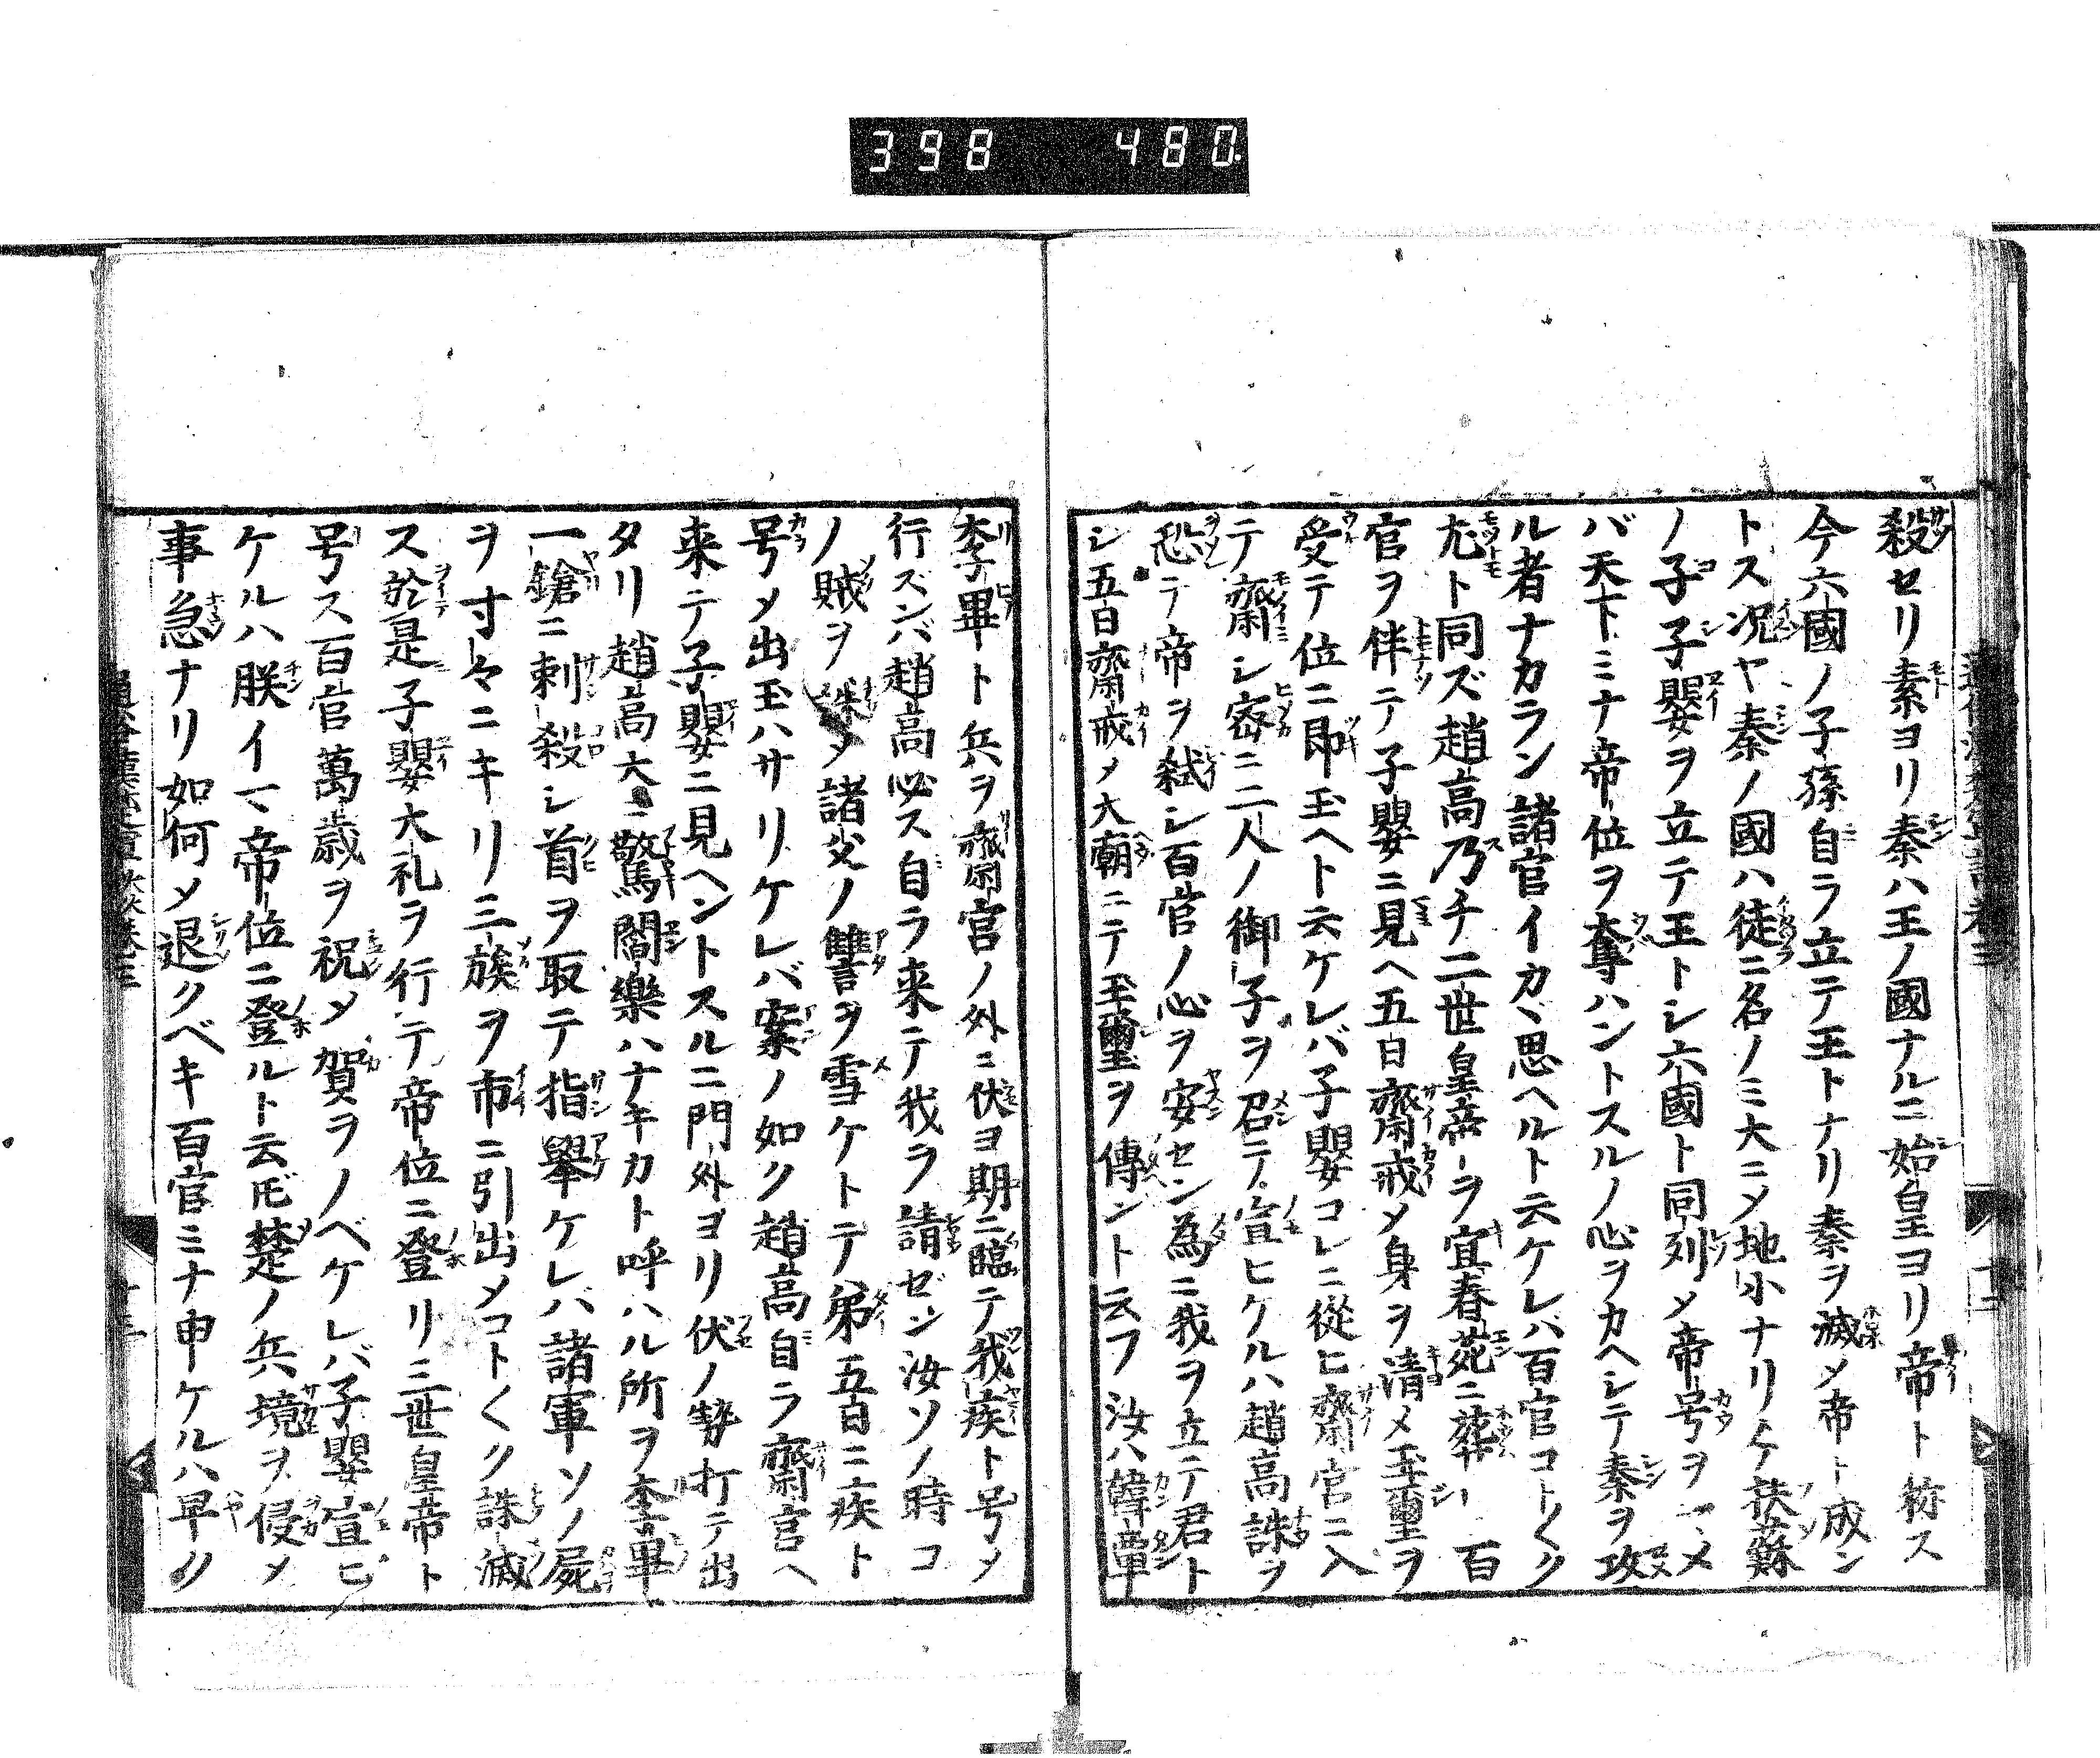 398 480.
殺セリ素ヨリ秦ハ王ノ國ナルニ始皇ヨリ帝ト称ス
今六國ノ子孫自ラ立テ王トナリ秦ヲ滅メ帝ト成ン
トス況ヤ秦ノ國ハ徒ニ名ノミ大ニメ地小ナリケ扶蘇
ノ子子嬰ヲ立テ王トシ六國ト同列メ帝号ヲヤメ
バ天下ミナ帝位ヲ奪ハントスルノ心ヲカヘシテ秦ヲ攻
ル者ナカラン諸官イカヾ思ヘルト云ケレバ百官コト〱ク
尤ト同ズ趙高乃チ二世皇帝ヲ宜春苑ニ葬リ百
官ヲ伴テ子嬰ニ見ヘ五日齋戒メ身ヲ清メ玉璽ヲ
受テ位ニ即玉ヘト云ケレバ子嬰コレニ從ヒ齋官ニ入
テ齋シ密ニ二人ノ御子ヲ召テ宣ヒケルハ趙高誅ヲ
恐テ帝ヲ弑シ百官ノ心ヲ安セン為ニ我ヲ立テ君ト
シ五日齋戒メ大廟ニテ玉璽ヲ傳ント云フ汝ハ韓章
李畢ト兵ヲ齋官ノ外ニ伏ヨ期ニ臨テ我疾ト号メ
行ズンバ趙高必ス自ラ来テ我ラ請ゼン汝ソノ時コ
ノ賊ヲ誅メ諸父ノ讐ヲ雪ケトテ弟五日ニ疾ト
号メ出玉ハサリケレバ案ノ如ク趙高自ラ齋官ヘ
来テ子嬰ニ見ヘントスルニ門外ヨリ伏ノ勢打テ出
タリ趙高大ニ驚閻樂ハナキカト呼ハル所ヲ李畢
一鎗ニ刺殺シ首ヲ取テ指擧ケレバ諸軍ソノ屍
ヲ寸々ニキリ三族ヲ市ニ引出メコト〱ク誅滅
ス於是子嬰大礼ヲ行テ帝位ニ登リ三世皇帝ト
号ス百官萬歳ヲ祝メ賀ヲノベケレバ子嬰宣ヒ
ケルハ朕イマ帝位ニ登ルト云𪜈楚ノ兵境ヲ侵メ
事急ナリ如何メ退クベキ百官ミナ申ケルハ早ク